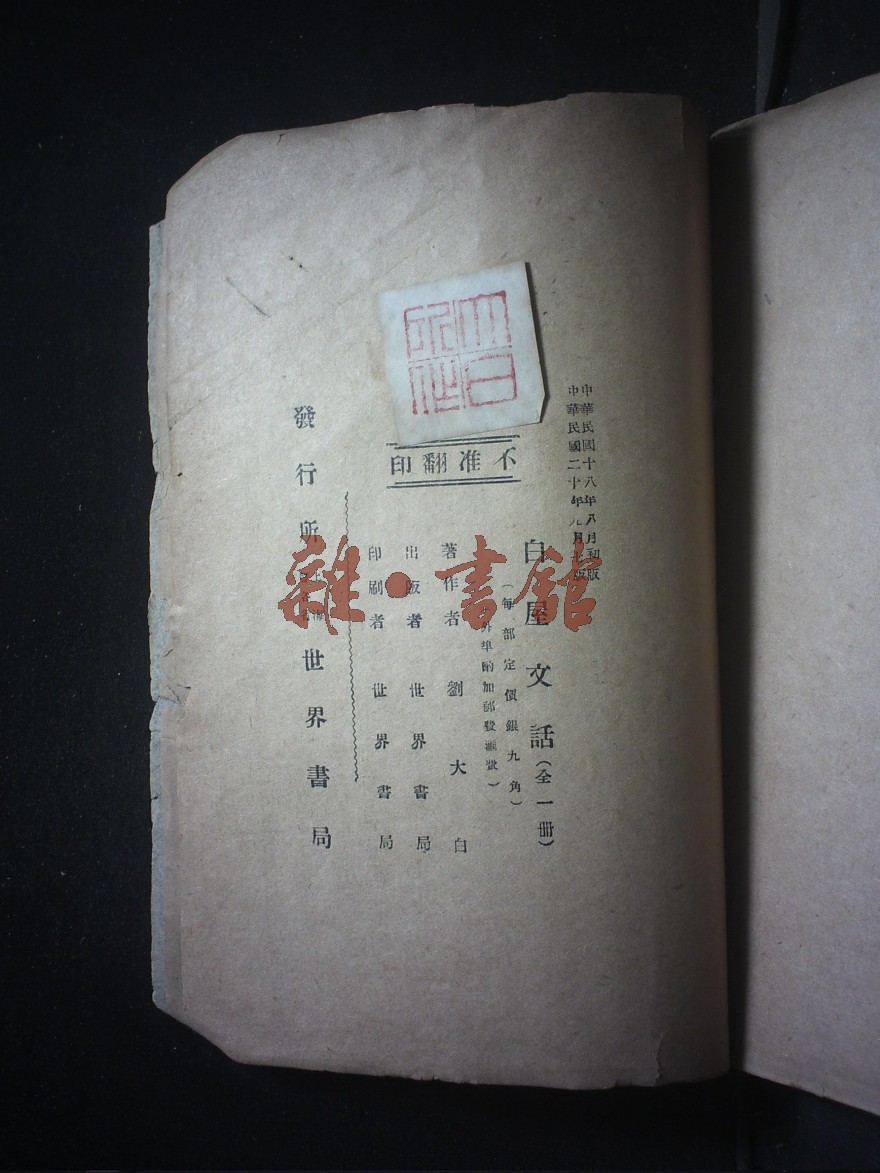 中華民國十八年八月初版
中華民國二十年九月
版
白屋文話(全一冊)
(每部定價銀九角)
外埠酌加郵費匯費)
著作者 劉大白
出版者 世界書局
印刷者 世界書局
不准翻印
發行所 世界書局
雜·書館